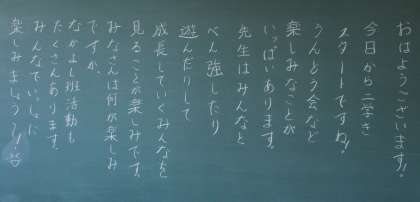 おはようございます!!
今日から二学き
スタートですね!
うんどう会など
楽しみなことが
いっぱいあります。
先生はみんなと
べん強したり
遊んだりして
成長していくみんなを
見ることが楽しみです。
みなさんは何が楽しみ
ですか。
なかよし班活動も
たくさんあります。
みんなでいっしょに
楽しみましょう!!